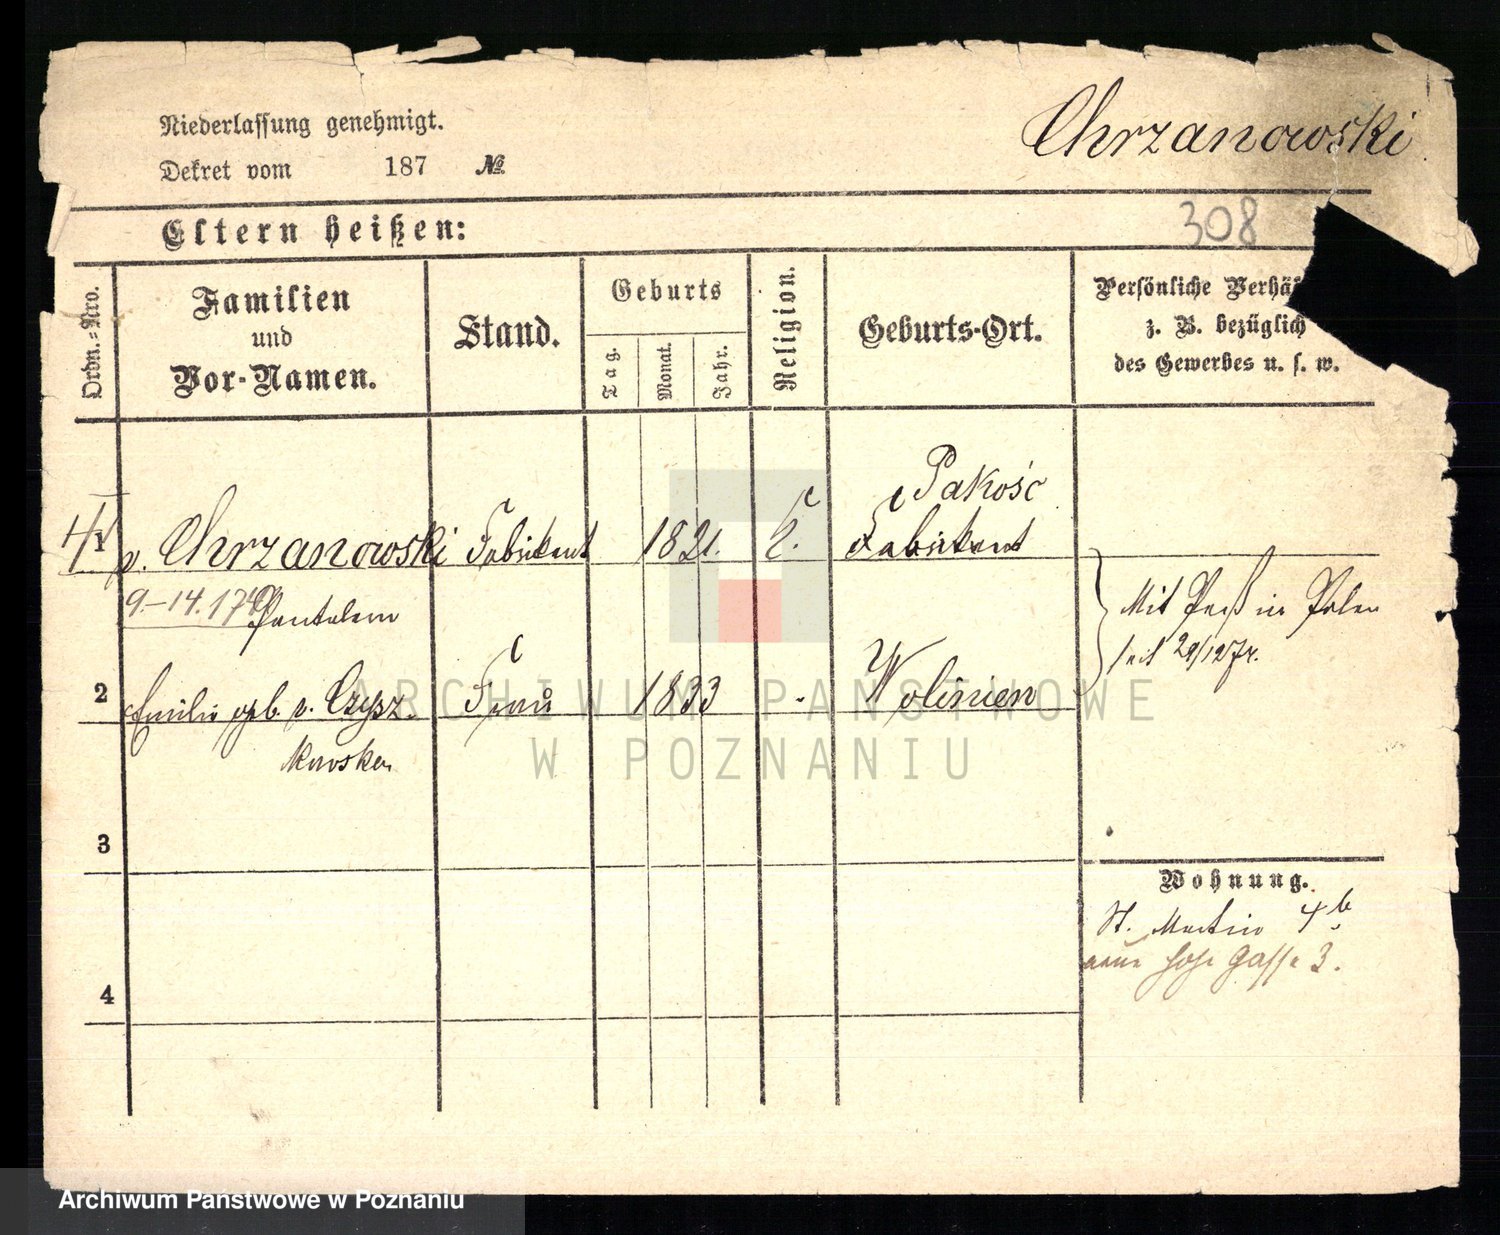 Niederlassung genehmigt.
Chrzanowski
Dekret vom 187 №
Eltern heißen:
308
Ordn.-Nro.
Familien
und
Vor-Namen.
Stand.
Geburts
Tag.
Monat.
Jahr.
Religion.
Geburts-Ort.
Persönliche Verhä
z. B. bezüglich
des Gewerbes u. s. w.
Pakość
1 v. Chrzanowski Fabrikant 1821. k. Fabrikant
9.-14.
Pantaleon
Mit Paß in Polen
seit 29/12 7
2 Emilie geb. v. Czysz- Frau 1833 - Wolinien
kowska
3
Wohnung.
St. Martin 4b
neue Gasse 3.
4
ARCHIWUM PAŃSTWOWE
W POZNANIU
Archiwum Państwowe w Poznaniu